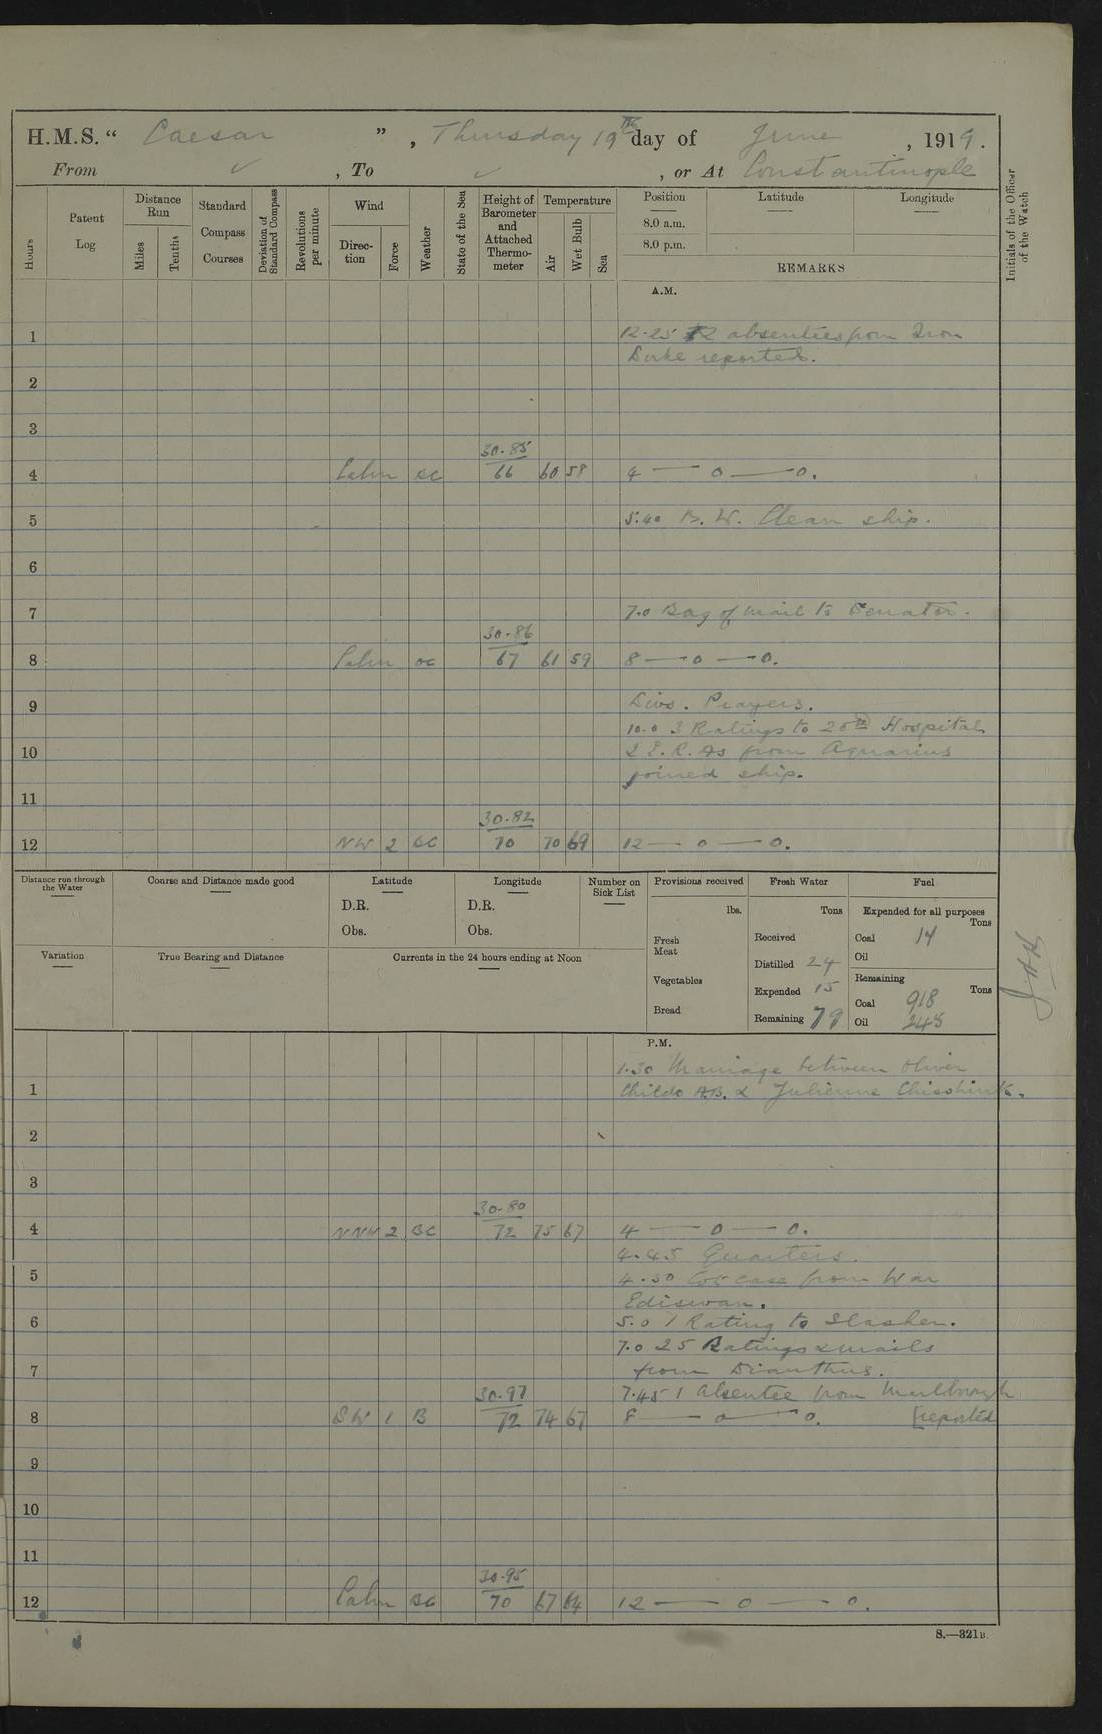 H.M.S. " Caesar ", Thursday 19th day of June, 1919.
From ✓, To ✓, or At Constantinople
Hours
Patent Log
Distance Run
Miles
Tenths
Standard Compass Courses
Deviation of Standard Compass
Revolutions per minute
Wind
Direction
Force
Weather
State of the Sea
Height of Barometer and Attached Thermometer
Temperature
Air
Wet Bulb
Sea
Position Latitude Longitude
8.0 a.m.
8.0 p.m.
REMARKS
Initials of the Officer of the Watch
A.M.
1 12.25 2 absentees from Iron
Duke reported.
2
3
30.85
4 Calm BC 66 60 58 4 — 0 — 0.
5 5.40 B. W. Clean ship.
6
7 7.0 Bag of mail to Senator.
30.86
8 Calm OC 67 61 59 8 — 0 — 0.
9 Divs. Prayers.
10.0 3 Ratings to 28th Hospital
10 2 E.R.As from Aquarius
joined ship.
11
30.82
12 NW 2 BC 70 70 69 12 — 0 — 0.
Distance run through the Water
Course and Distance made good
Latitude
D.R.
Obs.
Longitude
D.R.
Obs.
Number on Sick List
Provisions received
lbs.
Fresh Meat
Vegetables
Bread
Fresh Water
Tons
Received
Distilled 24
Expended 15
Remaining 79
Fuel
Expended for all purposes
Tons
Coal 14
Oil
Remaining
Tons
Coal 918
Oil 245
Variation
True Bearing and Distance
Currents in the 24 hours ending at Noon
P.M.
1.30 Marriage between Oliver
1 Childs A.B. & Julienne
2
3
30.80
4 NNW 2 BC 72 75 67 4 — 0 — 0.
4.45 Quarters.
5 4.30 Cot case from War
Ediswan.
6 5.0 1 Rating to Slasher.
7.0 25 Ratings & mails
7 from Dianthus.
30.97 7.45 1 absentee from Marlborough
8 SW 1 B 72 74 67 8 — 0 — 0. [reported
9
10
11
30.95
12 Calm BC 70 67 64 12 — 0 — 0.
S.—321B.